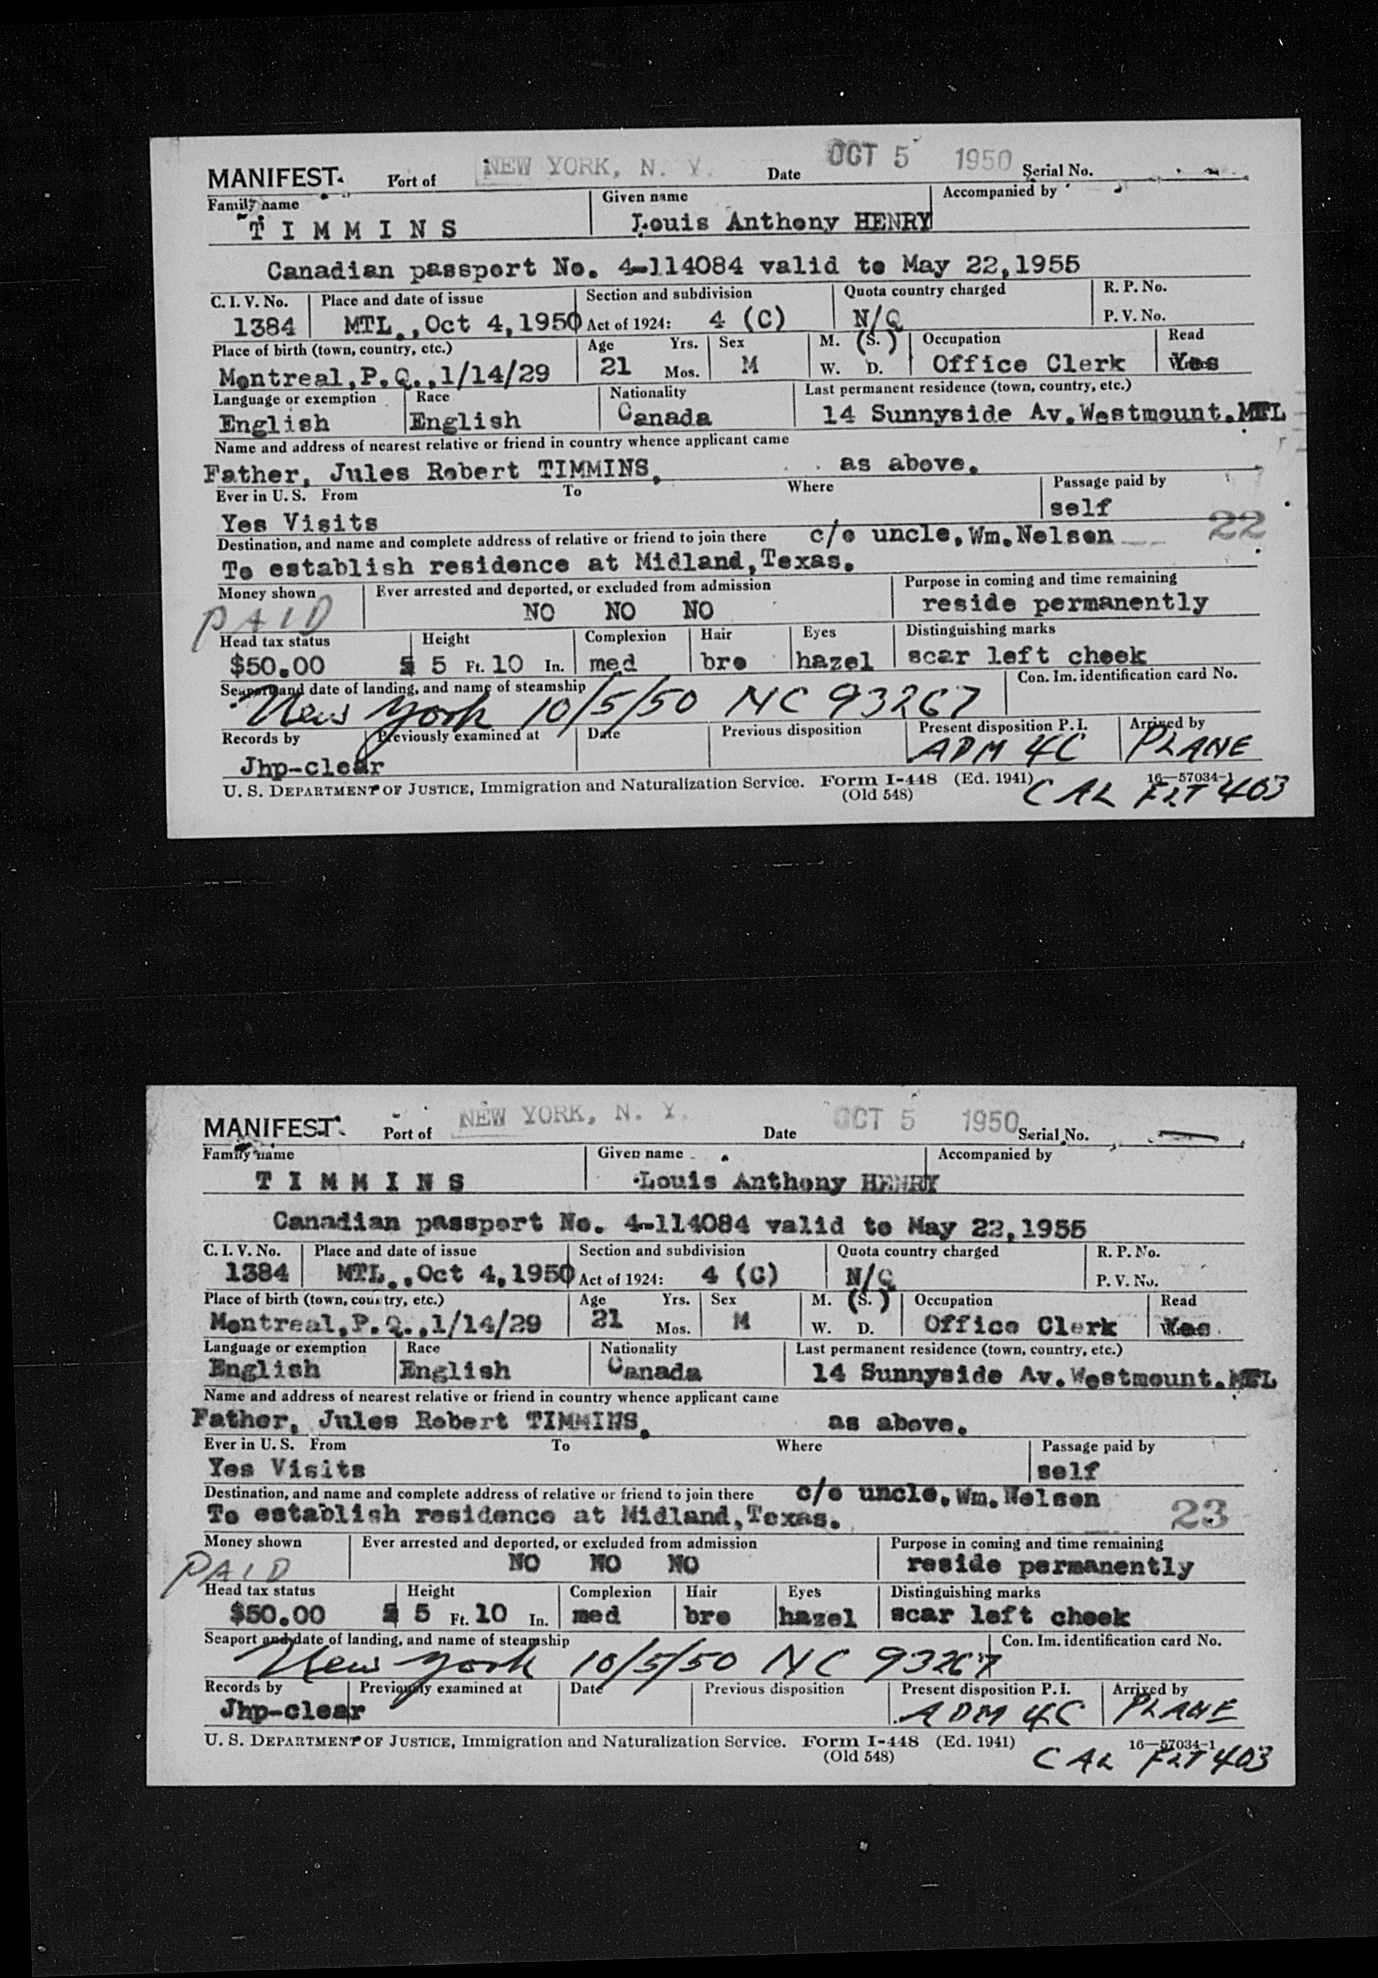 MANIFEST Port of NEW YORK, N. Y. Date OCT 5 1950 Serial No.
Family name Given name Accompanied by
TIMMINS Louis Anthony HENRY
Canadian passport No. 4-114084 valid to May 22,1955
C. I. V. No. Place and date of issue Section and subdivision Quota country charged R. P. No.
1384 MTL.,Oct 4,1950 Act of 1924: 4 (C) N/Q P. V. No.
Place of birth (town, country, etc.) Age Yrs. Sex M. (S.) Occupation Read
Montreal,P.Q.,1/14/29 21 Mos. M W. D. Office Clerk Yes
Language or exemption Race Nationality Last permanent residence (town, country, etc.)
English English Canada 14 Sunnyside Av.Westmount.MTL
Name and address of nearest relative or friend in country whence applicant came
Father, Jules Robert TIMMINS, as above.
Ever in U. S. From To Where Passage paid by
Yes Visits self
Destination, and name and complete address of relative or friend to join there c/o uncle,Wm.Nelson 22
To establish residence at Midland,Texas.
Money shown Ever arrested and deported, or excluded from admission Purpose in coming and time remaining
PAID NO NO NO reside permanently
Head tax status Height Complexion Hair Eyes Distinguishing marks
$50.00 5 Ft. 10 In. med bro hazel scar left cheek
Seaport and date of landing, and name of steamship Con. Im. identification card No.
New York 10/5/50 NC 93267
Records by Previously examined at Date Previous disposition Present disposition P. I. Arrived by
Jhp-clear ADM 4C PLANE
U. S. DEPARTMENT OF JUSTICE, Immigration and Naturalization Service. Form I-448 (Ed. 1941) 16—57034-1
(Old 548) CAL FLT 403
MANIFEST Port of NEW YORK, N. Y. Date OCT 5 1950 Serial No.
Family name Given name Accompanied by
TIMMINS Louis Anthony HENRY
Canadian passport No. 4-114084 valid to May 22,1955
C. I. V. No. Place and date of issue Section and subdivision Quota country charged R. P. No.
1384 MTL.,Oct 4,1950 Act of 1924: 4 (C) N/Q P. V. No.
Place of birth (town, country, etc.) Age Yrs. Sex M. (S.) Occupation Read
Montreal,P.Q.,1/14/29 21 Mos. M W. D. Office Clerk Yes
Language or exemption Race Nationality Last permanent residence (town, country, etc.)
English English Canada 14 Sunnyside Av.Westmount.MTL
Name and address of nearest relative or friend in country whence applicant came
Father, Jules Robert TIMMINS, as above.
Ever in U. S. From To Where Passage paid by
Yes Visits self
Destination, and name and complete address of relative or friend to join there c/o uncle,Wm.Nelson
To establish residence at Midland,Texas. 23
Money shown Ever arrested and deported, or excluded from admission Purpose in coming and time remaining
PAID NO NO NO reside permanently
Head tax status Height Complexion Hair Eyes Distinguishing marks
$50.00 5 Ft. 10 In. med bro hazel scar left cheek
Seaport and date of landing, and name of steamship Con. Im. identification card No.
New York 10/5/50 NC 93267
Records by Previously examined at Date Previous disposition Present disposition P. I. Arrived by
Jhp-clear ADM 4C PLANE
U. S. DEPARTMENT OF JUSTICE, Immigration and Naturalization Service. Form I-448 (Ed. 1941) 16—57034-1
(Old 548) CAL FLT 403